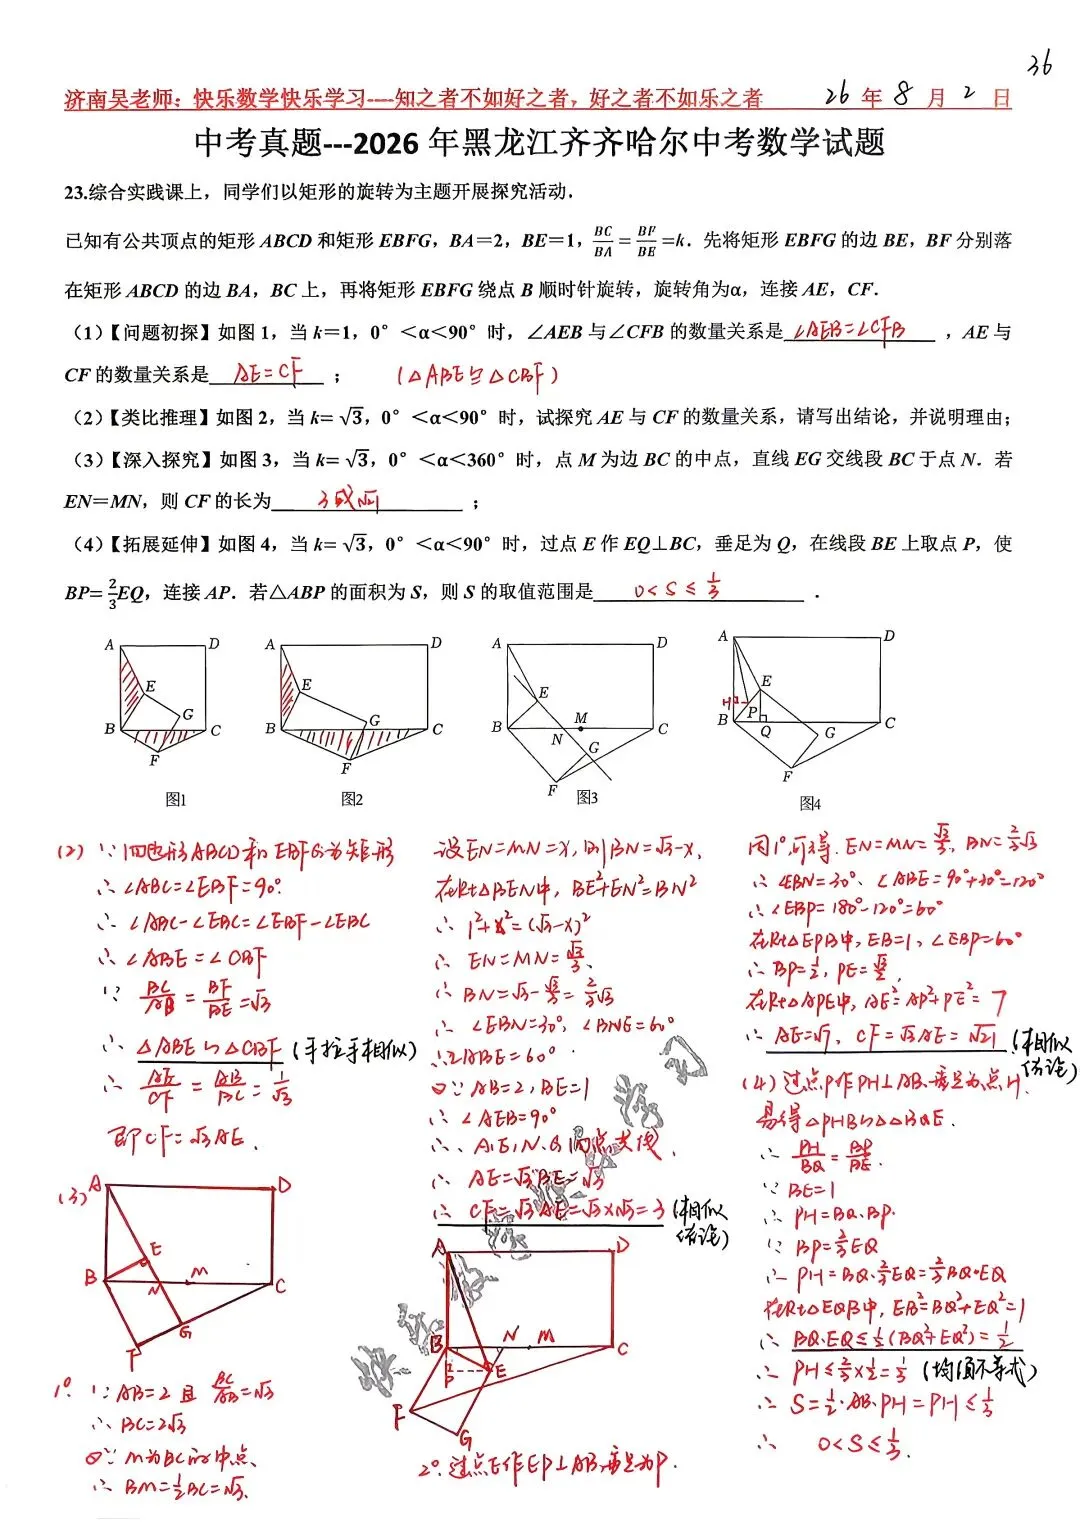 36
济南吴老师：快乐数学快乐学习----知之者不如好之者，好之者不如乐之者 26 年 8 月 2 日
中考真题---2026 年黑龙江齐齐哈尔中考数学试题
23.综合实践课上，同学们以矩形的旋转为主题开展探究活动．
已知有公共顶点的矩形 ABCD 和矩形 EBFG，BA＝2，BE＝1，BC/BA＝BF/BE＝k．先将矩形 EBFG 的边 BE，BF 分别落
在矩形 ABCD 的边 BA，BC 上，再将矩形 EBFG 绕点 B 顺时针旋转，旋转角为α，连接 AE，CF．
（1）【问题初探】如图 1，当 k＝1，0°＜α＜90°时，∠AEB 与∠CFB 的数量关系是 ∠AEB=∠CFB ，AE 与
CF 的数量关系是 AE=CF ； (△ABE≌△CBF)
（2）【类比推理】如图 2，当 k= √3，0°＜α＜90°时，试探究 AE 与 CF 的数量关系，请写出结论，并说明理由；
（3）【深入探究】如图 3，当 k= √3，0°＜α＜360°时，点 M 为边 BC 的中点，直线 EG 交线段 BC 于点 N．若
EN＝MN，则 CF 的长为 3或√21 ；
（4）【拓展延伸】如图 4，当 k= √3，0°＜α＜90°时，过点 E 作 EQ⊥BC，垂足为 Q，在线段 BE 上取点 P，使
BP= 2/3 EQ，连接 AP．若△ABP 的面积为 S，则 S 的取值范围是 0<S≤1/3 ．
A D E G B C F
图1
A D E G B C F
图2
A D E M B N C G F
图3
A D E H P B Q C G F
图4
(2) ∵四边形ABCD和EBFG为矩形
∴∠ABC=∠EBF=90°
∴∠ABC-∠EBC=∠EBF-∠EBC
∴∠ABE=∠CBF
∵ BC/AB = BF/BE = √3
∴ △ABE∽△CBF (手拉手相似)
∴ AE/CF = AB/BC = 1/√3
即CF=√3AE.
(3)
A D E B N M C F G
1° ∵AB=2 且 BC/AB=√3
∴BC=2√3
又∵M为BC的中点、
∴BM=1/2BC=√3.
设EN=MN=x, 则BN=√3-x,
在Rt△BEN中, BE²+EN²=BN²
∴ 1²+x²=(√3-x)²
∴ EN=MN=√3/3.
∴BN=√3-√3/3=2/3√3
∴∠EBN=30°, ∠BNE=60°
∴∠ABE=60°
又∵AB=2, BE=1
∴∠AEB=90°
∴A,E,N,G四点共线
∴AE=√3BE=√3
∴ CF=√3AE=√3×√3=3 (相似结论)
A D B N M C P E F G
2° 过点E作EP⊥AB,垂足为P.
同1°,可得. EN=MN=√3/3, BN=2/3√3
∴∠EBN=30°、∠ABE=90°+30°=120°
∴∠EBP=180°-120°=60°
在Rt△EPB中, EB=1, ∠EBP=60°
∴BP=1/2, PE=√3/2,
在Rt△APE中, AE²=AP²+PE²=7
∴AE=√7, CF=√3AE=√21 (相似结论)
(4) 过点P作PH⊥AB,垂足为点H.
易得△PHB∽△BQE.
∴ PH/BQ = BP/BE.
∵BE=1
∴PH=BQ·BP.
∵BP=2/3EQ
∴PH=BQ·2/3EQ=2/3BQ·EQ
在Rt△EQB中, EB²=BQ²+EQ²=1
∴ BQ·EQ≤1/2(BQ²+EQ²)=1/2
∴PH≤2/3×1/2=1/3 (均值不等式)
∴S=1/2·AB·PH=PH≤1/3
∴ 0<S≤1/3.